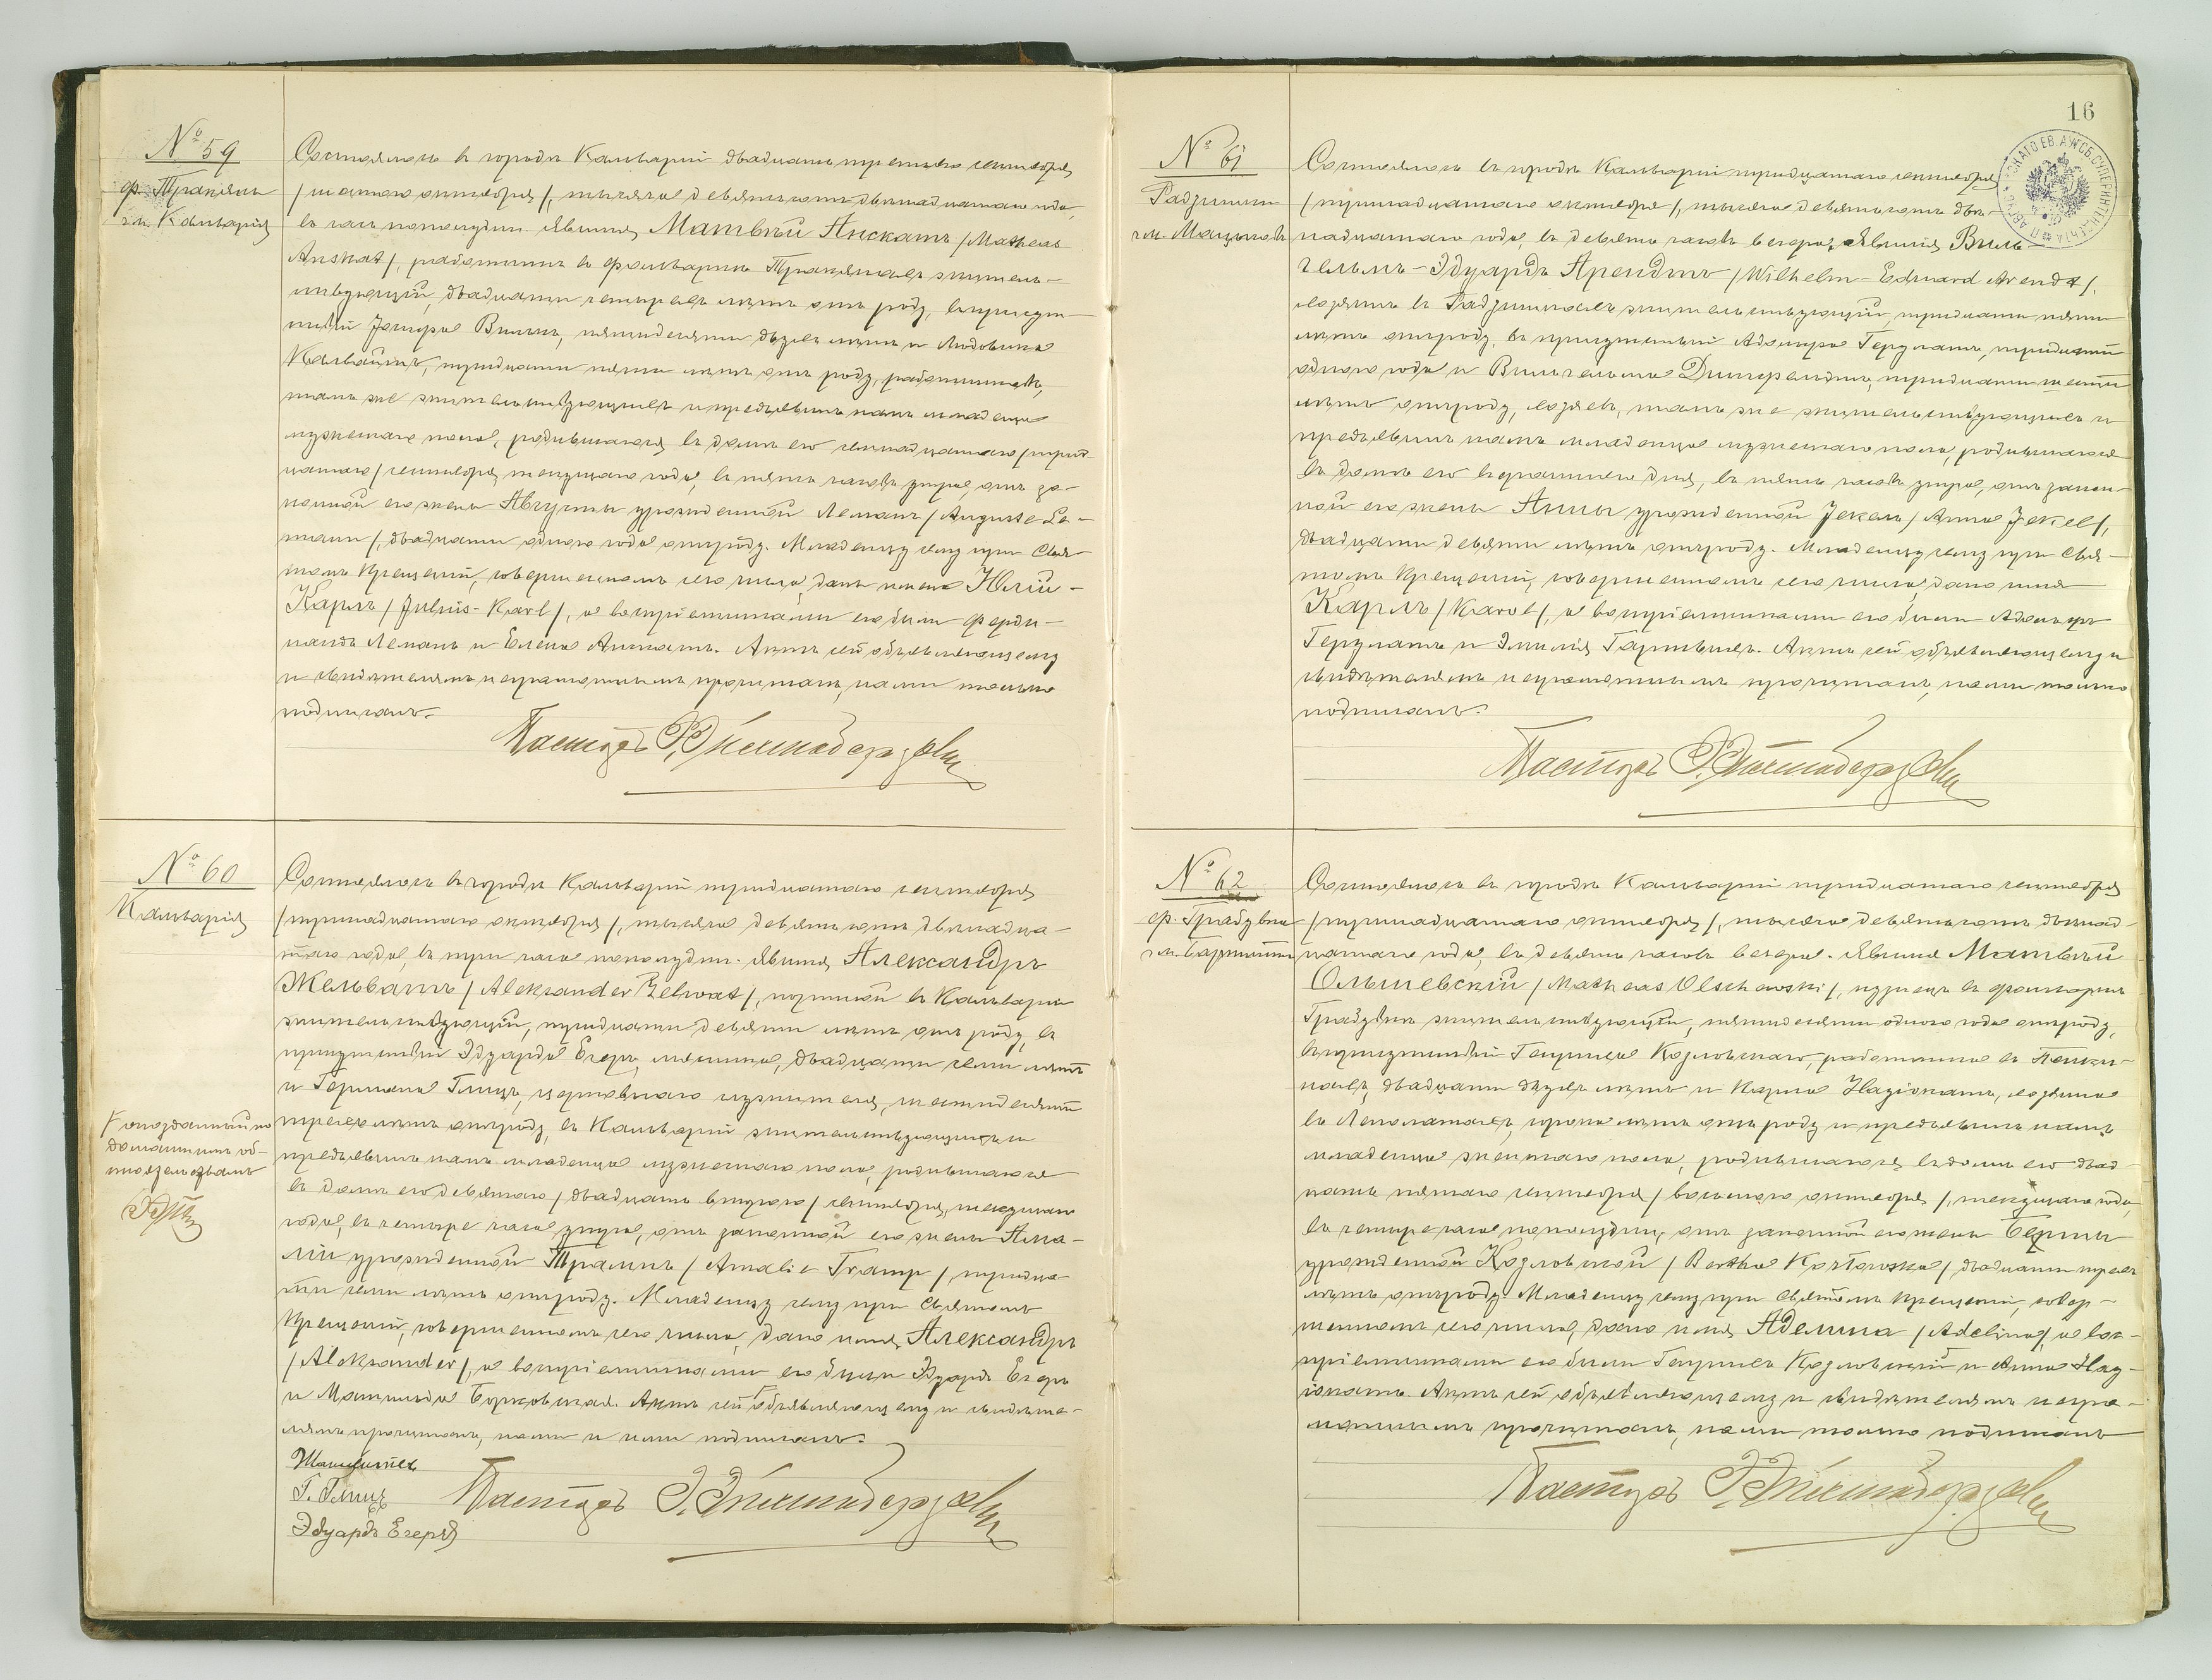 № 59
ф. Тракяны
гм. Кальварія
Состоялось въ городѣ Кальваріи двадцать третьяго сентября
/шестого октября/, тысяча девятьсотъ двѣнадцатаго года,
въ часъ пополудни. Явился Матвѣй Анскатъ /Matheas
Anskat/, работникъ въ фольваркѣ Тракянахъ житель-
ствующій, двадцати четырехъ лѣтъ отъ роду, въ присут-
ствіи Вильм, пятидесяти двухъ лѣтъ и Людовика
Калвайтъ, тридцати пяти лѣтъ отъ роду, работниковъ,
тамъ же жительствующихъ и предъявилъ намъ младенца
мужескаго пола, родившагося въ домѣ его семнадцатаго /трид-
цатаго/ сентября, текущаго года, въ пять часовъ утра, отъ за-
конной его жены Августы урожденной Леманъ /Auguste Le-
mann/, двадцати одного года отъ роду. Младенцу сему при Свя-
томъ Крещеніи, совершенномъ сего числа, дано имена Юлій-
Карлъ /Julius-Karl/, а воспріемниками его были Ферди-
нандъ Леманъ и Елена Анскатъ. Актъ сей объявляющему
и свидѣтелямъ неграмотнымъ прочитанъ, нами только
подписанъ.
Пасторъ
№ 60
Кальварія
Состоялось въ городѣ Кальваріи тридцатаго сентября
/тринадцатаго октября/, тысяча девятьсотъ двѣнадца-
таго года, въ три часа пополудни. Явился Александръ
Жельватъ /Aleksander Zelwat/, портной въ Кальваріи
жительствующій, тридцати девяти лѣтъ отъ роду, въ
присутствіи Эдуарда Егеръ, двадцати семи лѣтъ
и Германа Глицъ, церковнаго служителя, шестидесяти
трехъ лѣтъ отъ роду, въ Кальваріи жительствующихъ и
предъявилъ намъ младенца мужескаго пола, родившагося
въ домѣ его девятаго /двадцать второго/ сентября, текущаго
года, въ четыре часа утра, отъ законной его жены Ама-
ліи урожденной Трампъ /Amalie Tramp/, тридца-
ти семи лѣтъ отъ роду. Младенцу сему при Святомъ
Крещеніи, совершенномъ сего числа, дано имя Александръ
/Aleksander/, а воспріемниками его были Эдуардъ Егеръ
и Матильда Бурковская. Актъ сей объявляющему и свидѣте-
лямъ прочитанъ, нами и ими подписанъ.
опозданный по
домашнимъ об-
стоятельствамъ
Г. Глицъ
Эдуардъ Егеръ
Пасторъ
16
№ 61
Состоялось въ городѣ Кальваріи тридцатаго сентября
/тринадцатаго октября/, тысяча девятьсотъ двѣ-
надцатаго года, въ девять часовъ вечера. Явился Виль-
гельмъ-Эдуардъ Арендтъ /Wilhelm-Eduard Arendt/,
жительствующій, тридцати пяти
лѣтъ отъ роду, въ присутствіи Адольфа Герулатъ, тридцати
одного года и Вильгельма тридцати шести
лѣтъ отъ роду, тамъ же жительствующихъ и
предъявилъ намъ младенца мужескаго пола, родившагося
въ домѣ его вчерашняго дня, въ пять часовъ утра, отъ закон-
ной его жены Анны урожденной Јекель /Anna Jekel/,
двадцати девяти лѣтъ отъ роду. Младенцу сему при Свя-
томъ Крещеніи, совершенномъ сего числа, дано имя
Карлъ /Karol/, а воспріемниками его были Адольфъ
Герулатъ и Эмилія Актъ сей объявляющему и
свидѣтелямъ неграмотнымъ прочитанъ, нами только
подписанъ.
Пасторъ
№ 62
Состоялось въ городѣ Кальваріи тридцатаго сентября
/тринадцатаго октября/, тысяча девятьсотъ двѣнад-
цатаго года, въ девять часовъ вечера. Явился Матвѣй
Ольшевскій /Matheas Olschewski/, кузнецъ въ фольваркѣ
жительствующій, пятидесяти одного года отъ роду,
въ присутствіи Генриха Козловскаго, работника въ
двадцати двухъ лѣтъ и Карла
лѣтъ отъ роду и предъявилъ намъ
младенца женскаго пола, родившагося въ домѣ его двад-
цать пятаго сентября /восьмого октября/, текущаго года,
въ четыре часа пополудни, отъ законной его жены Берты
урожденной Козловской /Bertha Kozłowska/ двадцати трехъ
лѣтъ отъ роду. Младенцу сему при Святомъ Крещеніи, совер-
шенномъ сего числа, дано имя Аделина /Adelina/, а вос-
пріемниками его были Генрихъ Козловскій и Анна
Актъ сей объявляющему и свидѣтелямъ негра-
мотнымъ прочитанъ, нами только подписанъ
Пасторъ